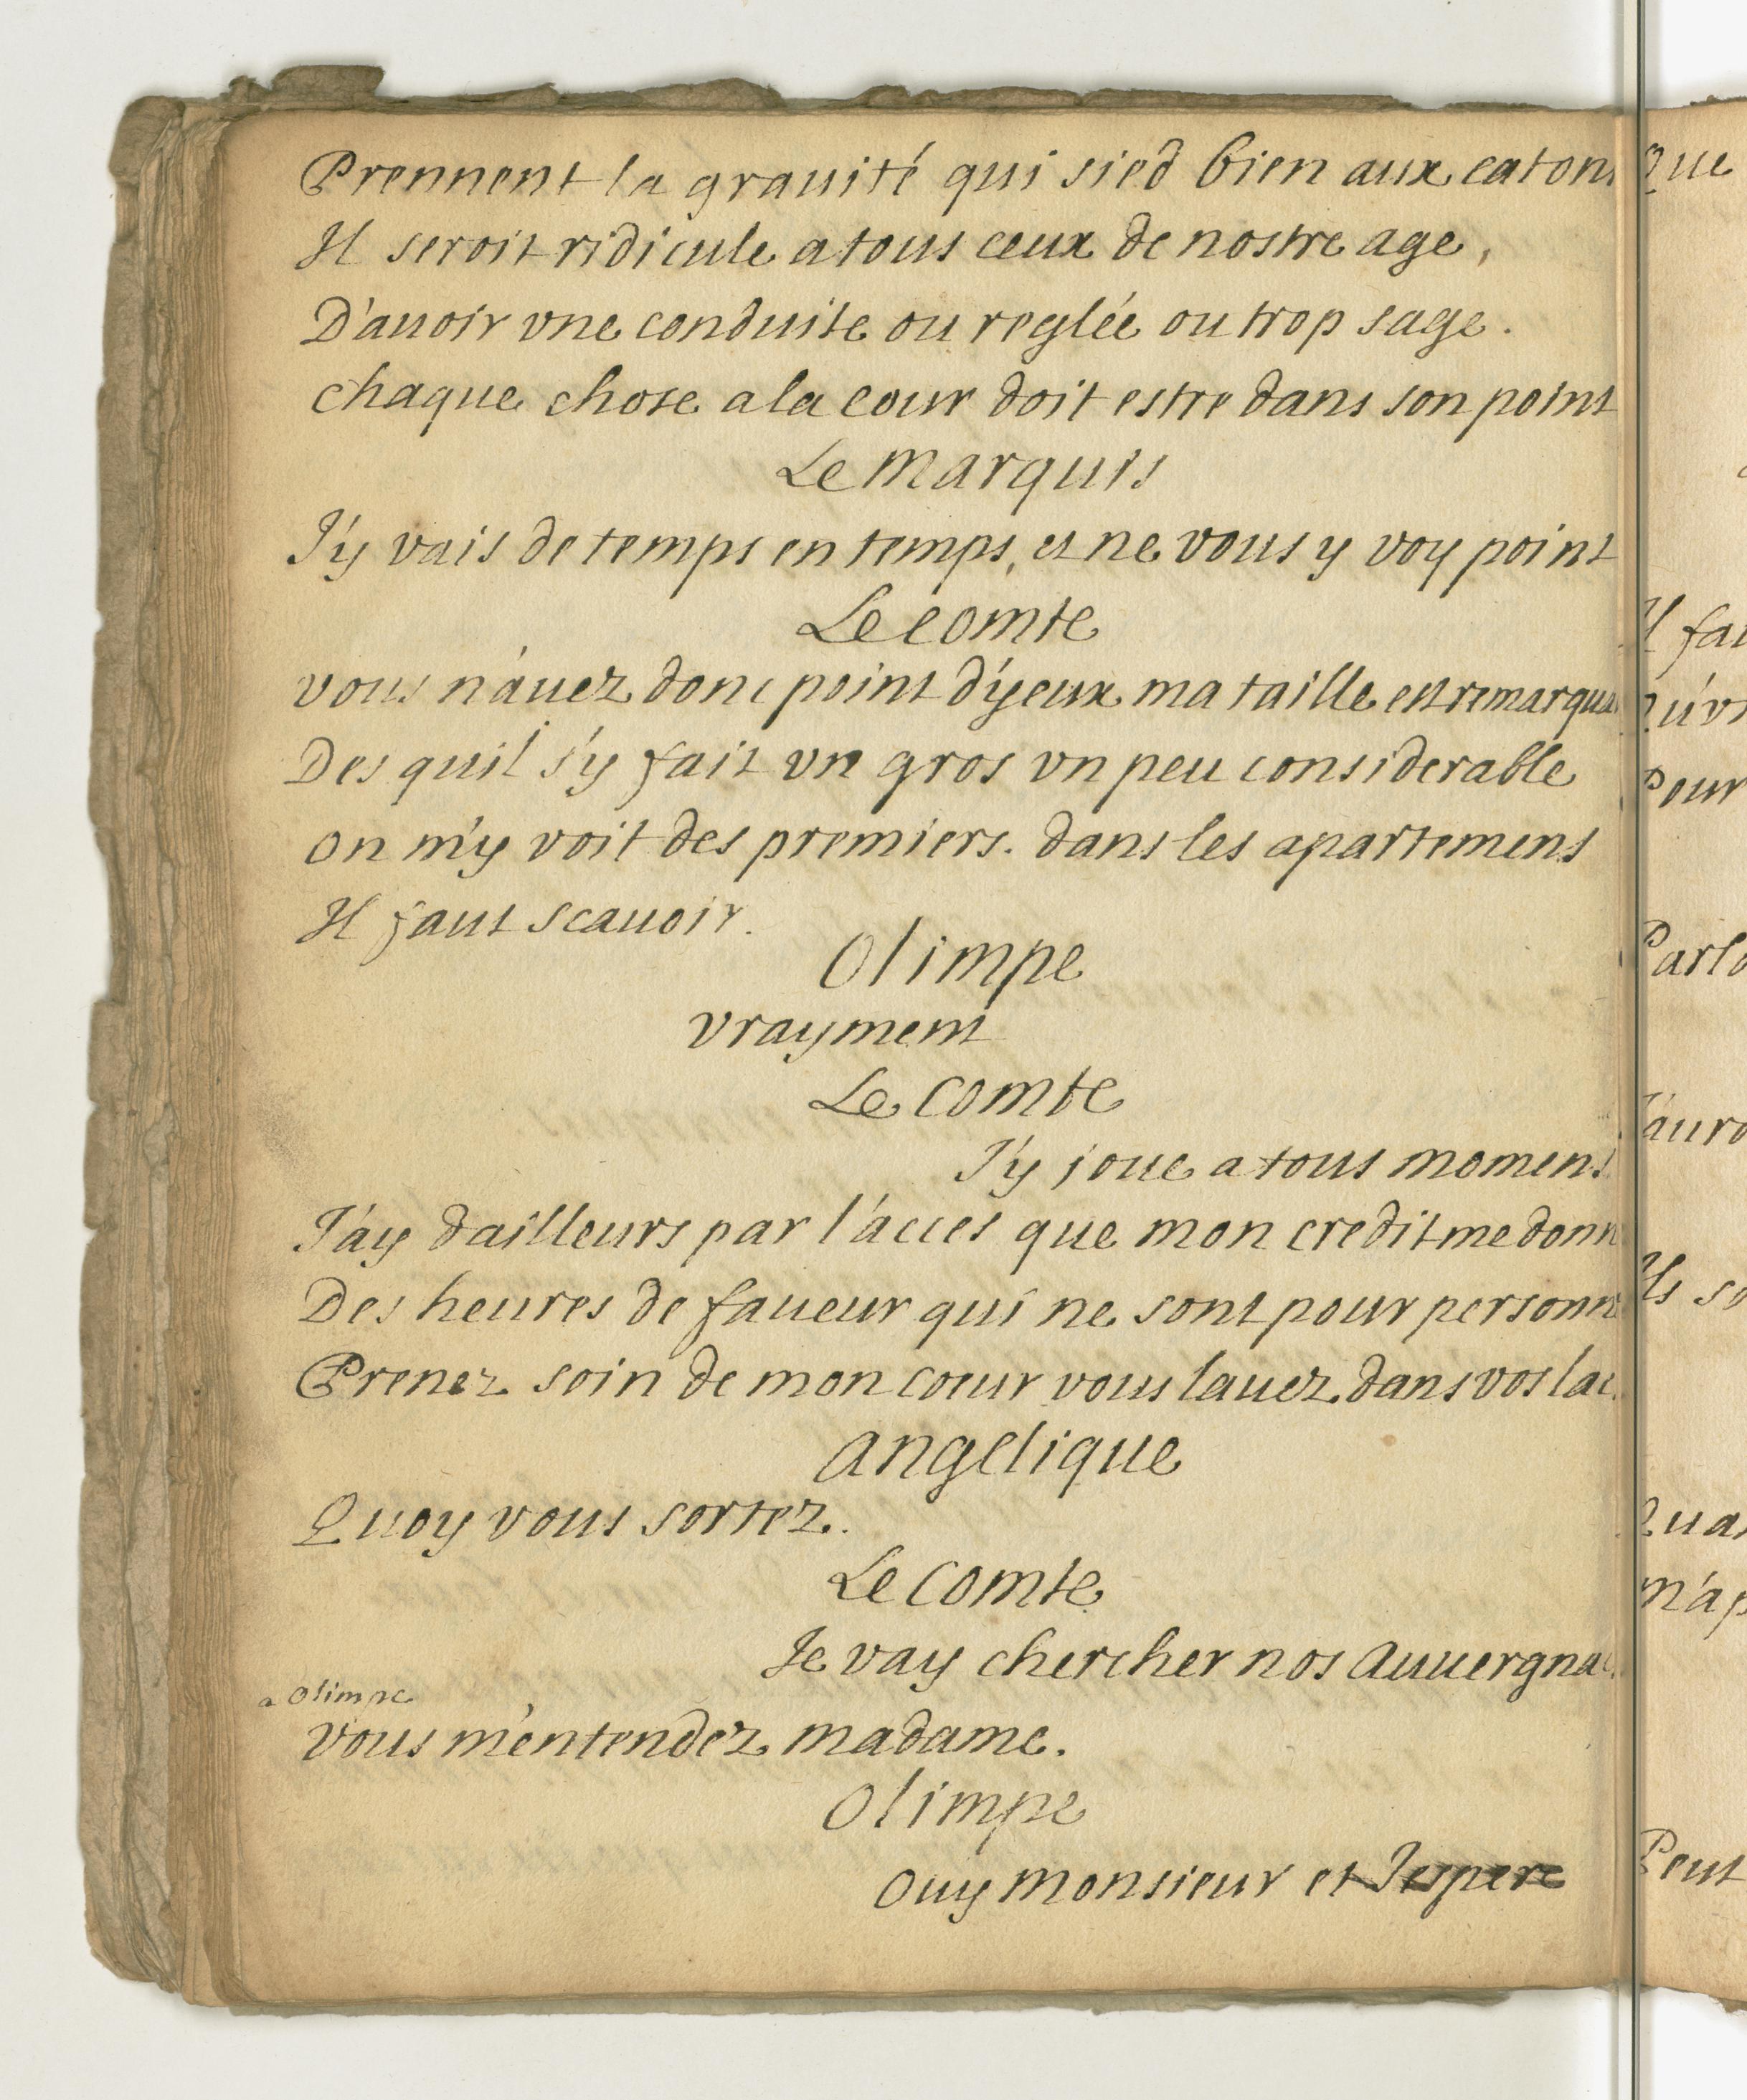 Prennent la grauité qui sied bien aux catons
Il seroit ridicule a tous ceux de nostre age,
D'auoir vne conduite ou reglée ou trop sage.
chaque chose a la cour doit estre dans son point
Le Marquis
J'y vais de temps en temps, et ne vous y voy point
Le Comte
vous n'auez donc point d'yeux ma taille est remarqua
Des quil s'y fait vn gros vn peu considerable
on m'y voit des premiers. dans les apartemens
Il faut scauoir.
Olimpe
vrayment
Le Comte
J'y joue a tous momens
J'ay dailleurs par l'acces que mon credit me donn
Des heures de faueur qui ne sont pour personn
Prenez soin de mon coeur vous lauez dans vos lac
Angelique
Quoy vous sortez.
Le Comte
Je vay chercher nos Auuergna
a Olimpe
vous m'entendez madame.
Olimpe
ouy Monsieur et J'espere
Que
Il fai
Pour
Parlo
J'auro
Ils so
Qua
m'ap
Peut